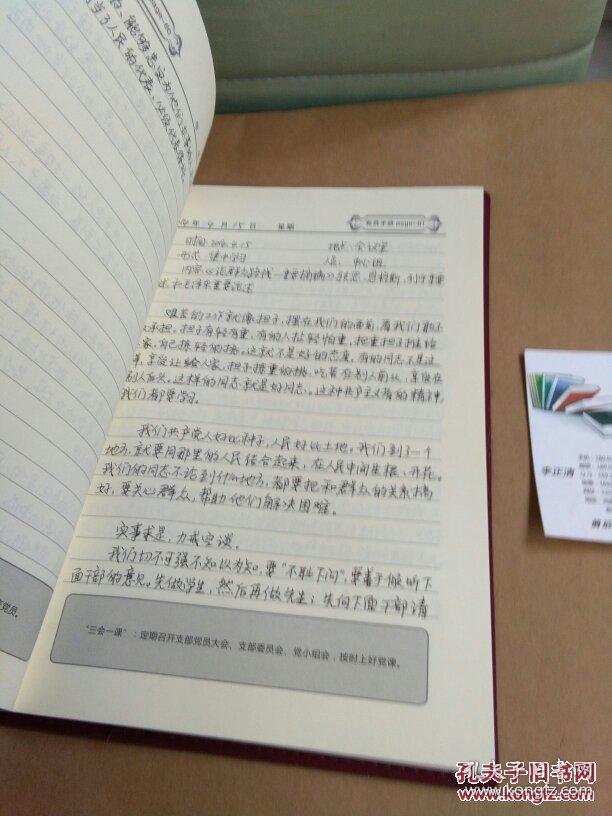 的、能够忠实为他们
当了人民的代表,
年 4 月 15 日 星期
党员手册 page-61
时间: 2014.4.15 地点: 会议室
形式 集中学习
内容:《论群众路线—重要论述摘编》马克思、恩格斯、列宁重要
述和毛泽东重要论述
艰苦的工作就像担子,摆在我们的面前,看我们敢不
承担。担子有轻有重。有的人拈轻怕重,把重担子推给
人家,自己拣轻的挑。这就不是好的态度。有的同志不是这
样,享受让给人家,担子拣重的挑,吃苦在别人前头,享受在
别人后头。这样的同志就是好同志。这种共产主义者的精神,
我们都要学习。
我们共产党人好比种子,人民好比土地。我们到了一个
地方,就要同那里的人民结合起来,在人民中间生根、开花。
我们的同志不论到什么地方,都要把和群众的关系搞
好,要关心群众,帮助他们解决困难。
实事求是,力戒空谈。
我们切不可强不知以为知,要“不耻下问”,要善于倾听下
面干部的意见。先做学生,然后再做先生;先向下面干部请
“三会一课”:定期召开支部党员大会、支部委员会、党小组会,按时上好党课。
党员。
李正清
孔夫子旧书网
www.kongfz.com